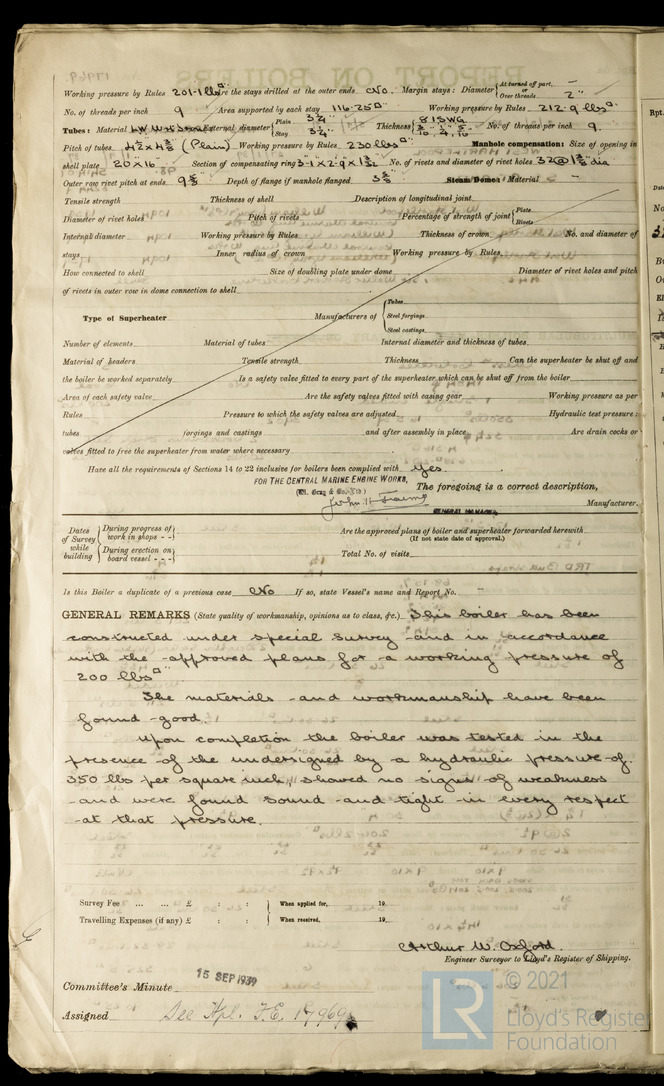 Working pressure by Rules 201.1 lbs□". Are the stays drilled at the outer ends No. Margin stays: Diameter { At turned off part, — or Over threads 2"
No. of threads per inch 9 Area supported by each stay 116.25□" Working pressure by Rules 212.9 lbs□".
Tubes: Material External diameter { Plain 3¼" Stay 3¼" Thickness { 8 ISWG 5/16" ¼" No. of threads per inch 9.
Pitch of tubes 4½ x 4⅜ (Plain) Working pressure by Rules 230 lbs□" Manhole compensation: Size of opening in
shell plate 20 x 16 Section of compensating ring No. of rivets and diameter of rivet holes 32 @ dia
Outer row rivet pitch at ends 9⅝ Depth of flange if manhole flanged 3⅝ Steam Dome: Material —
Tensile strength Thickness of shell Description of longitudinal joint
Diameter of rivet holes Pitch of rivets Percentage of strength of joint { Plate Rivets
Internal diameter Working pressure by Rules Thickness of crown No. and diameter of
stays Inner radius of crown Working pressure by Rules
How connected to shell Size of doubling plate under dome Diameter of rivet holes and pitch
of rivets in outer row in dome connection to shell
Type of Superheater Manufacturers of { Tubes Steel forgings Steel castings
Number of elements Material of tubes Internal diameter and thickness of tubes
Material of headers Tensile strength Thickness Can the superheater be shut off and
the boiler be worked separately Is a safety valve fitted to every part of the superheater which can be shut off from the boiler
Area of each safety valve Are the safety valves fitted with easing gear Working pressure as per
Rules Pressure to which the safety valves are adjusted Hydraulic test pressure:
tubes forgings and castings and after assembly in place Are drain cocks or
valves fitted to free the superheater from water where necessary
Have all the requirements of Sections 14 to 22 inclusive for boilers been complied with Yes.
FOR THE CENTRAL MARINE ENGINE WORKS,
(Wm. Gray & Co. Ltd) The foregoing is a correct description,
GENERAL MANAGER Manufacturer.
Dates of Survey while building { During progress of work in shops - - During erection on board vessel - - -
Are the approved plans of boiler and superheater forwarded herewith
(If not state date of approval.)
Total No. of visits
Is this Boiler a duplicate of a previous case No If so, state Vessel's name and Report No. —
GENERAL REMARKS (State quality of workmanship, opinions as to class, &c.) This boiler has been
constructed under special survey and in accordance
with the approved plans for a working pressure of
200 lbs□".
The materials and workmanship have been
found good.
Upon completion the boiler was tested in the
presence of the undersigned by a hydraulic pressure of
350 lbs per square inch, showed no signs of weakness
and were found sound and tight in every respect
at that pressure.
Survey Fee ... ... £ : : When applied for, 19
Travelling Expenses (if any) £ : : When received, 19
Arthur W. Oxford.
Engineer Surveyor to Lloyd's Register of Shipping.
15 SEP 1939
Committee's Minute
Assigned See Hpl. F.E. 17969
LR © 2021
Lloyd's Register
Foundation